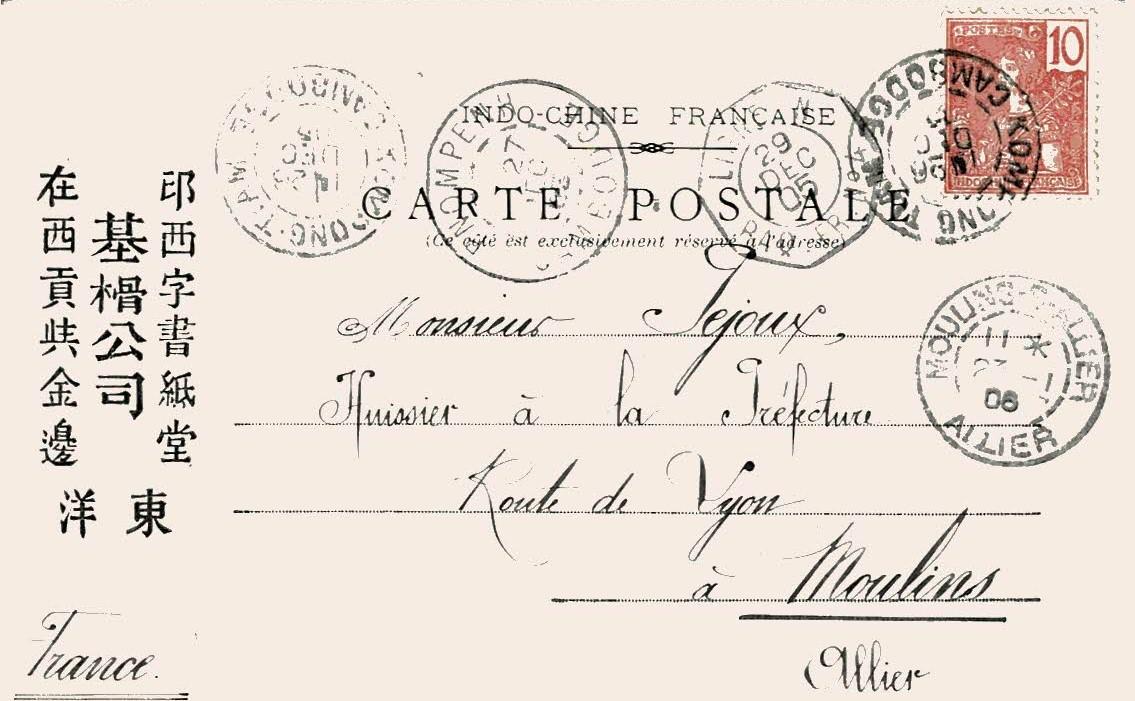 10
POSTES
INDO-CHINE FRANÇAISE
CARTE POSTALE
(Ce côté est exclusivement réservé à l'adresse)
印西字書紙堂
基榾公司
在西貢共金邊
東洋
PNOMPENH
27
CAMBODGE
LIGNE N
29
DEC
05
PAQ. FR. N°4
CAMBODGE
DEC
05
MOULINS-S-ALLIER
11 *
23 -1
06
ALLIER
Monsieur Sejoux,
Huissier à la Préfecture
Route de Lyon
à Moulins
Allier
France.